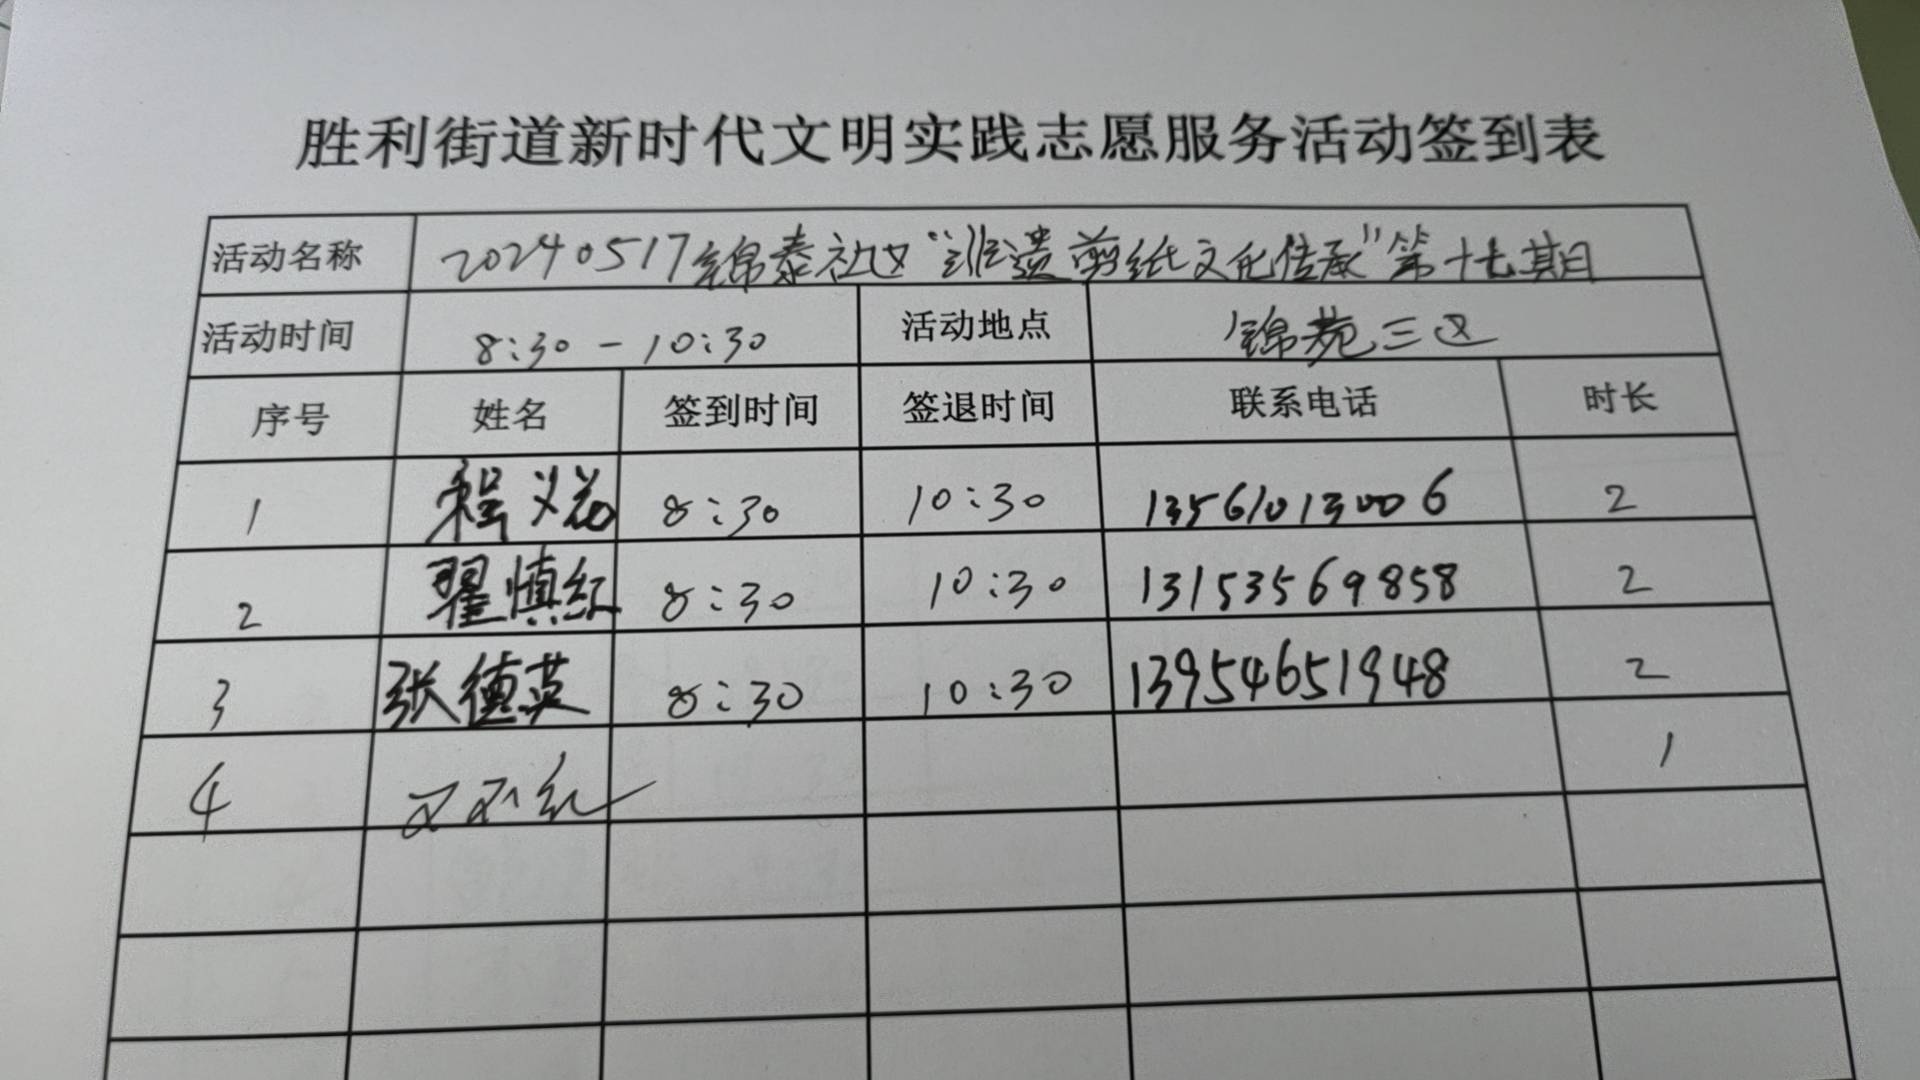 胜利街道新时代文明实践志愿服务活动签到表
活动名称 20240517锦泰社区“非遗剪纸文化传承”第十七期
活动时间 8:30-10:30 活动地点 锦苑三区
序号 姓名 签到时间 签退时间 联系电话 时长
1 程义花 8:30 10:30 13561013006 2
2 翟慎红 8:30 10:30 13153569858 2
3 张德英 8:30 10:30 13954651948 2
4 1